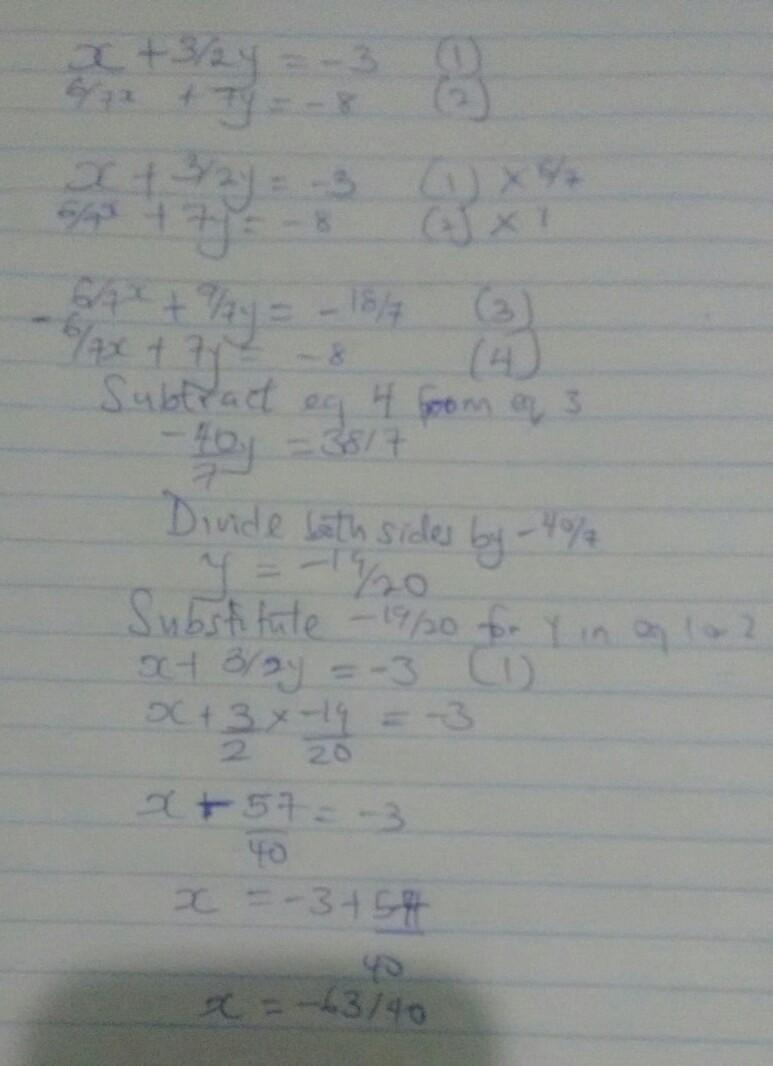 x + 3/2y = -3 (1)
6/7x + 7y = -8 (2)
x + 3/2y = -3 (1) × 6/7
6/7x + 7y = -8 (2) × 1
6/7x + 9/7y = -18/7 (3)
- 6/7x + 7y = -8 (4)
Subtract eq 4 from eq 3
-40/7 y = 38/7
Divide both sides by -40/7
y = -19/20
Substitute -19/20 for y in eq 1 or 2
x + 3/2y = -3 (1)
x + 3/2 × -19/20 = -3
x - 57/40 = -3
x = -3 + 57/40
x = -63/40